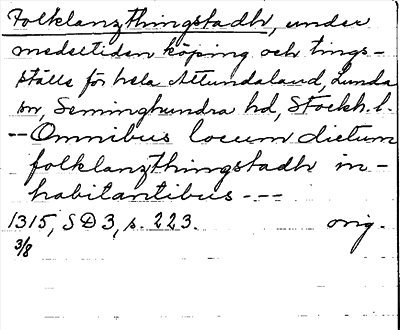 Folklanzthingstadh, under
medeltiden köping och tings-
ställe för hela Attundaland, Lunda
sn, Seminghundra hd, Stockh. l.
-- Omnibus locum dictum
folklanzthingstadh in-
habitantibus ---
1315, SD 3, s. 223. orig.
3/8